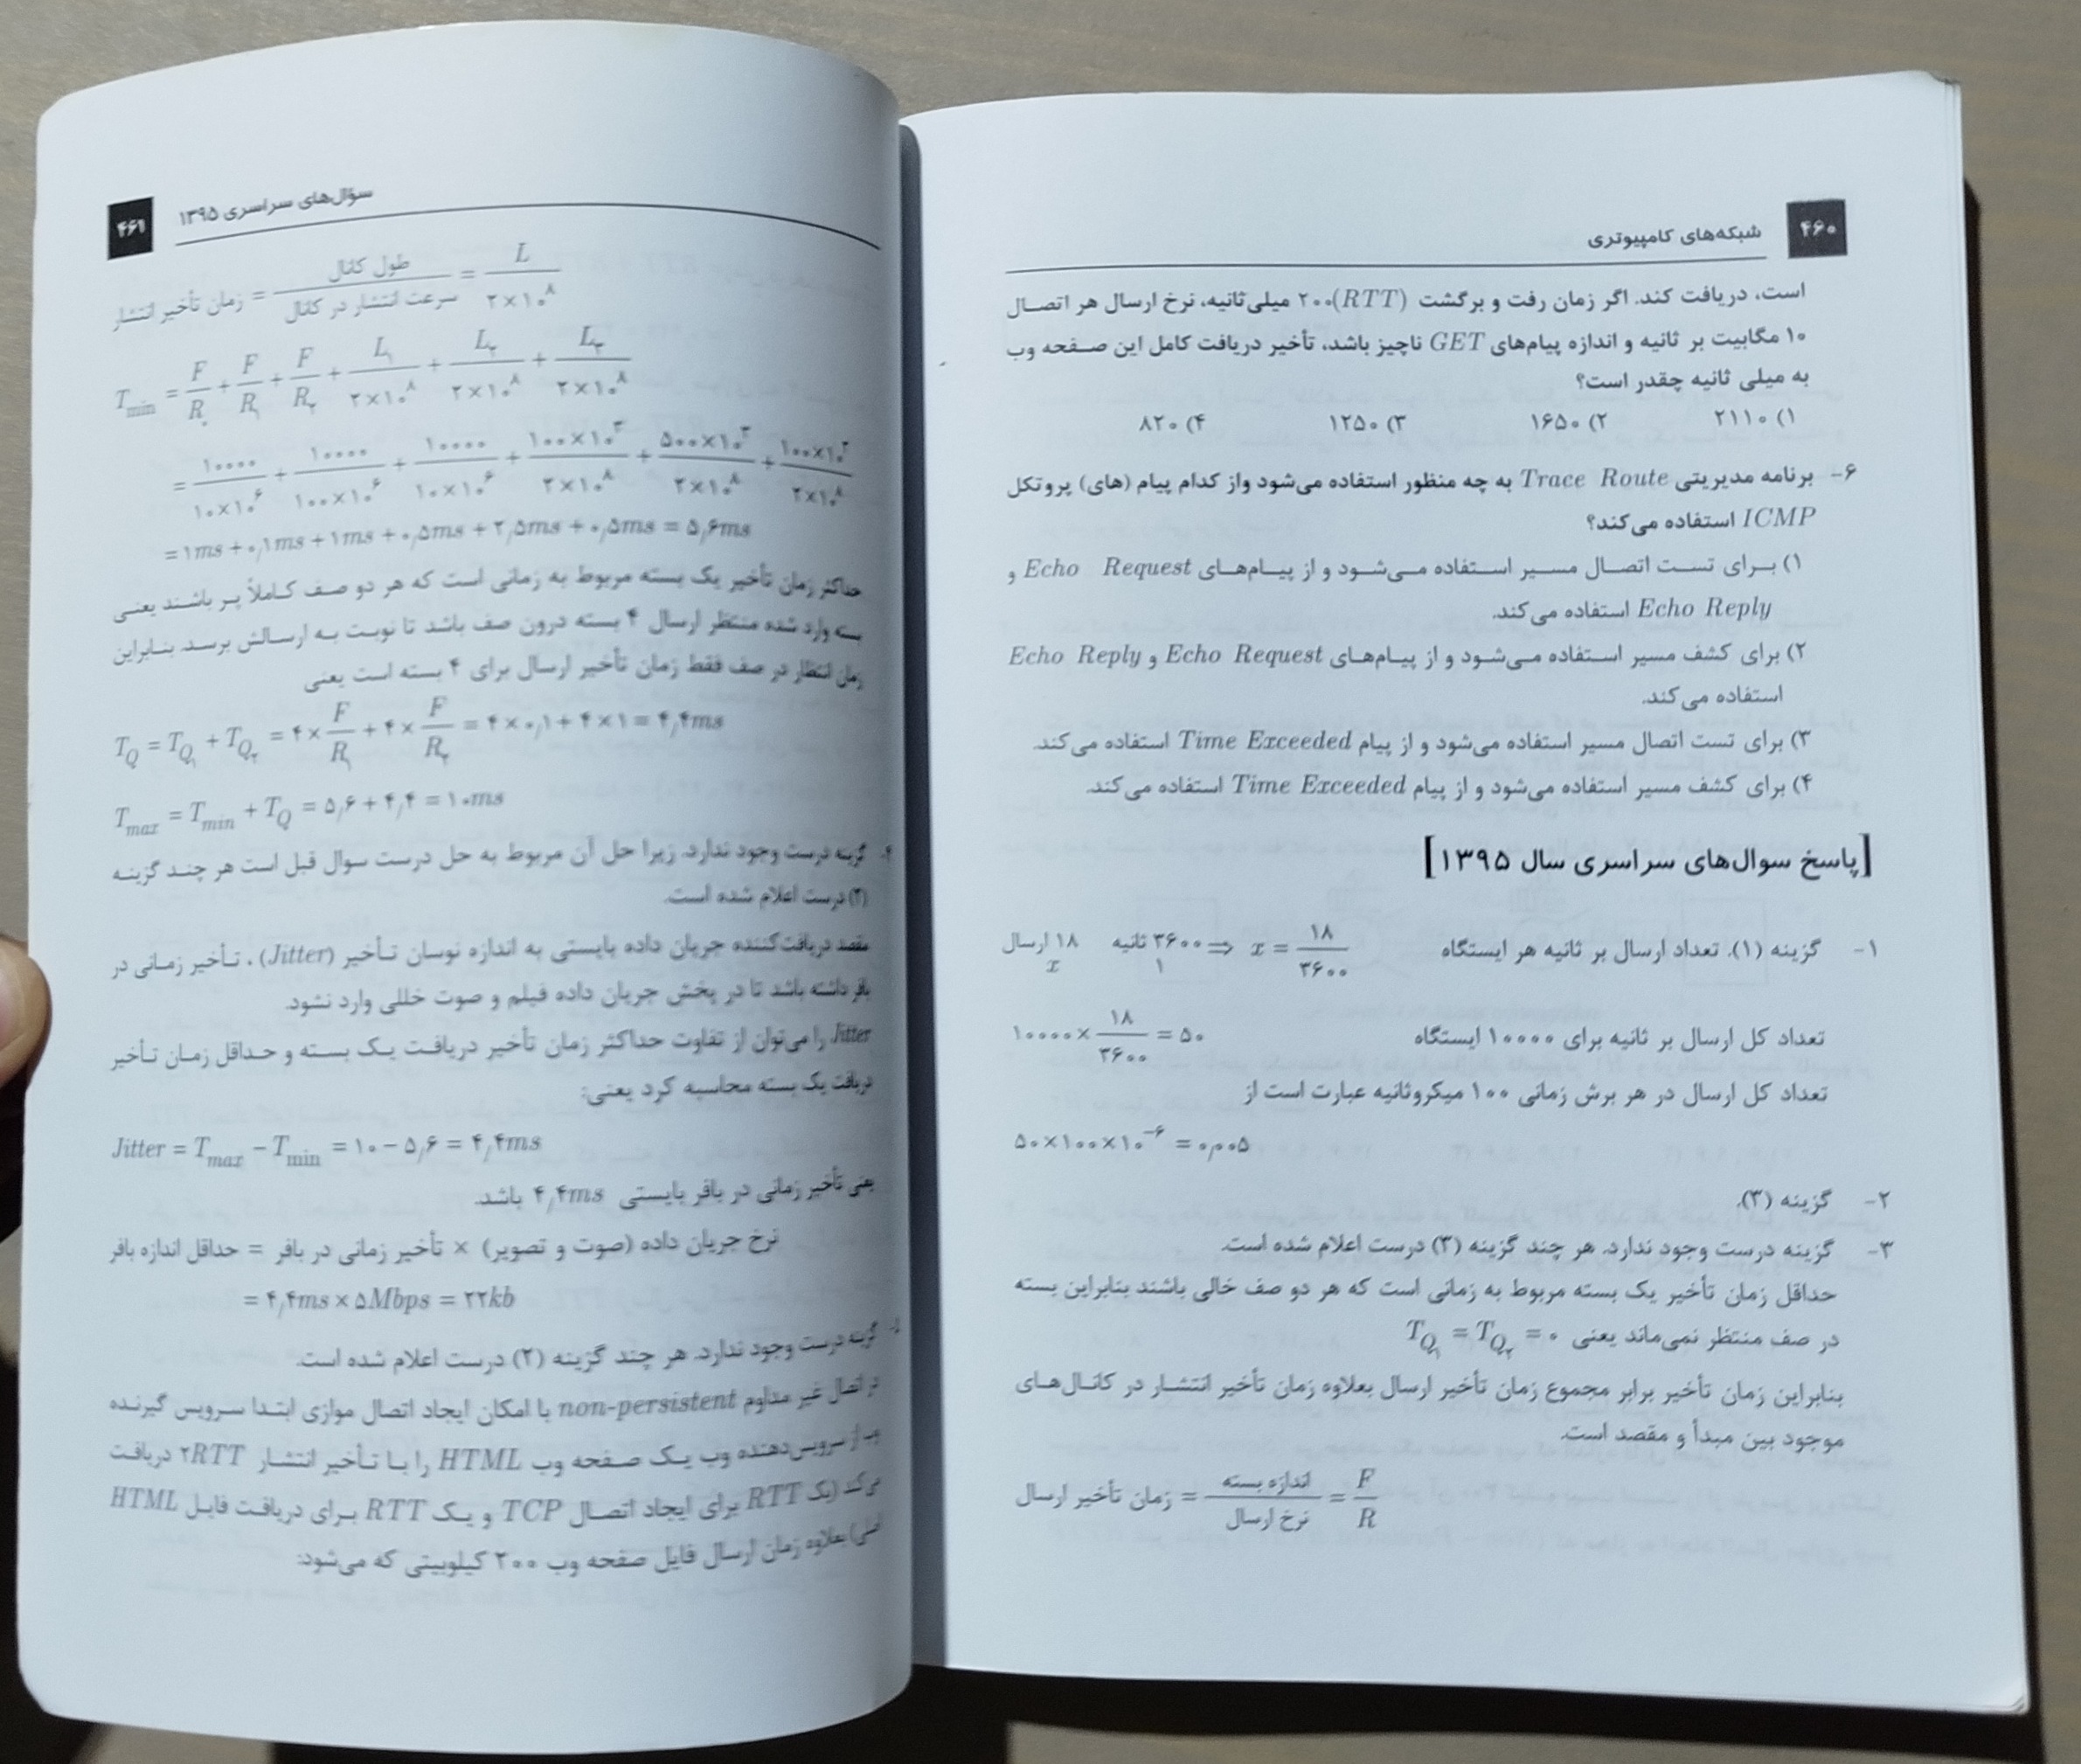 ۴۶۰
شبکه‌های کامپیوتری
است، دریافت کند. اگر زمان رفت و برگشت (RTT) ۲۰۰ میلی‌ثانیه، نرخ ارسال هر اتصال
۱۰ مگابیت بر ثانیه و اندازه پیام‌های GET ناچیز باشد، تأخیر دریافت کامل این صفحه وب
به میلی ثانیه چقدر است؟
۱) ۲۱۱۰ ۲) ۱۶۵۰ ۳) ۱۲۵۰ ۴) ۸۲۰
۶- برنامه مدیریتی Trace Route به چه منظور استفاده می‌شود واز کدام پیام (های) پروتکل
ICMP استفاده می‌کند؟
۱) برای تست اتصال مسیر استفاده می‌شود و از پیام‌های Echo Request و
Echo Reply استفاده می‌کند.
۲) برای کشف مسیر استفاده می‌شود و از پیام‌های Echo Request و Echo Reply
استفاده می‌کند.
۳) برای تست اتصال مسیر استفاده می‌شود و از پیام Time Exceeded استفاده می‌کند.
۴) برای کشف مسیر استفاده می‌شود و از پیام Time Exceeded استفاده می‌کند.
[پاسخ سوال‌های سراسری سال ۱۳۹۵]
۱- گزینه (۱). تعداد ارسال بر ثانیه هر ایستگاه x = ۱۸/۳۶۰۰ ⇒ ۳۶۰۰ ثانیه ۱۸ ارسال
۱ x
تعداد کل ارسال بر ثانیه برای ۱۰۰۰۰ ایستگاه ۱۰۰۰۰ × ۱۸/۳۶۰۰ = ۵۰
تعداد کل ارسال در هر برش زمانی ۱۰۰ میکروثانیه عبارت است از
۵۰×۱۰۰×۱۰^-۶ = ۰٫۰۰۵
۲- گزینه (۳).
۳- گزینه درست وجود ندارد. هر چند گزینه (۳) درست اعلام شده است.
حداقل زمان تأخیر یک بسته مربوط به زمانی است که هر دو صف خالی باشند بنابراین بسته
در صف منتظر نمی‌ماند یعنی T_Q۱ = T_Q۲ = ۰
بنابراین زمان تأخیر برابر مجموع زمان تأخیر ارسال بعلاوه زمان تأخیر انتشار در کانال‌های
موجود بین مبدأ و مقصد است.
زمان تأخیر ارسال = اندازه بسته / نرخ ارسال = F/R
سؤال‌های سراسری ۱۳۹۵
۴۶۱
زمان تأخیر انتشار = طول کانال / سرعت انتشار در کانال = L/(۲×۱۰^۸)
T_min = F/R۰ + F/R۱ + F/R۲ + L۱/(۲×۱۰^۸) + L۲/(۲×۱۰^۸) + L۳/(۲×۱۰^۸)
= ۱۰۰۰۰/(۱۰×۱۰^۶) + ۱۰۰۰۰/(۱۰۰×۱۰^۶) + ۱۰۰۰۰/(۱۰×۱۰^۶) + (۱۰۰×۱۰^۳)/(۲×۱۰^۸) + (۵۰۰×۱۰^۳)/(۲×۱۰^۸) + (۱۰۰×۱۰^۳)/(۲×۱۰^۸)
= ۱ms + ۰٫۱ms + ۱ms + ۰٫۵ms + ۲٫۵ms + ۰٫۵ms = ۵٫۶ms
حداکثر زمان تأخیر یک بسته مربوط به زمانی است که هر دو صف کاملاً پر باشند یعنی
بسته وارد شده منتظر ارسال ۴ بسته درون صف باشد تا نوبت به ارسالش برسد. بنابراین
زمان انتظار در صف فقط زمان تأخیر ارسال برای ۴ بسته است یعنی
T_Q = T_Q۱ + T_Q۲ = ۴×F/R۱ + ۴×F/R۲ = ۴×۰٫۱ + ۴×۱ = ۴٫۴ms
T_max = T_min + T_Q = ۵٫۶ + ۴٫۴ = ۱۰ms
گزینه درست وجود ندارد. زیرا حل آن مربوط به حل درست سوال قبل است هر چند گزینه
درست اعلام شده است.
مقصد دریافت‌کننده جریان داده بایستی به اندازه نوسان تأخیر (Jitter)، تأخیر زمانی در
بافر داشته باشد تا در پخش جریان داده فیلم و صوت خللی وارد نشود.
Jitter را می‌توان از تفاوت حداکثر زمان تأخیر دریافت یک بسته و حداقل زمان تأخیر
دریافت یک بسته محاسبه کرد یعنی:
Jitter = T_max − T_min = ۱۰ − ۵٫۶ = ۴٫۴ms
یعنی تأخیر زمانی در بافر بایستی ۴٫۴ms باشد.
نرخ جریان داده (صوت و تصویر) × تأخیر زمانی در بافر = حداقل اندازه بافر
= ۴٫۴ms × ۵Mbps = ۲۲kb
گزینه درست وجود ندارد. هر چند گزینه (۲) درست اعلام شده است.
در اتصال غیر مداوم non-persistent با امکان ایجاد اتصال موازی ابتدا سرویس گیرنده
وب از سرویس‌دهنده وب یک صفحه وب HTML را با تأخیر انتشار ۲RTT دریافت
می‌کند (یک RTT برای ایجاد اتصال TCP و یک RTT برای دریافت فایل HTML
اصلی) بعلاوه زمان ارسال فایل صفحه وب ۲۰۰ کیلوبیتی که می‌شود: